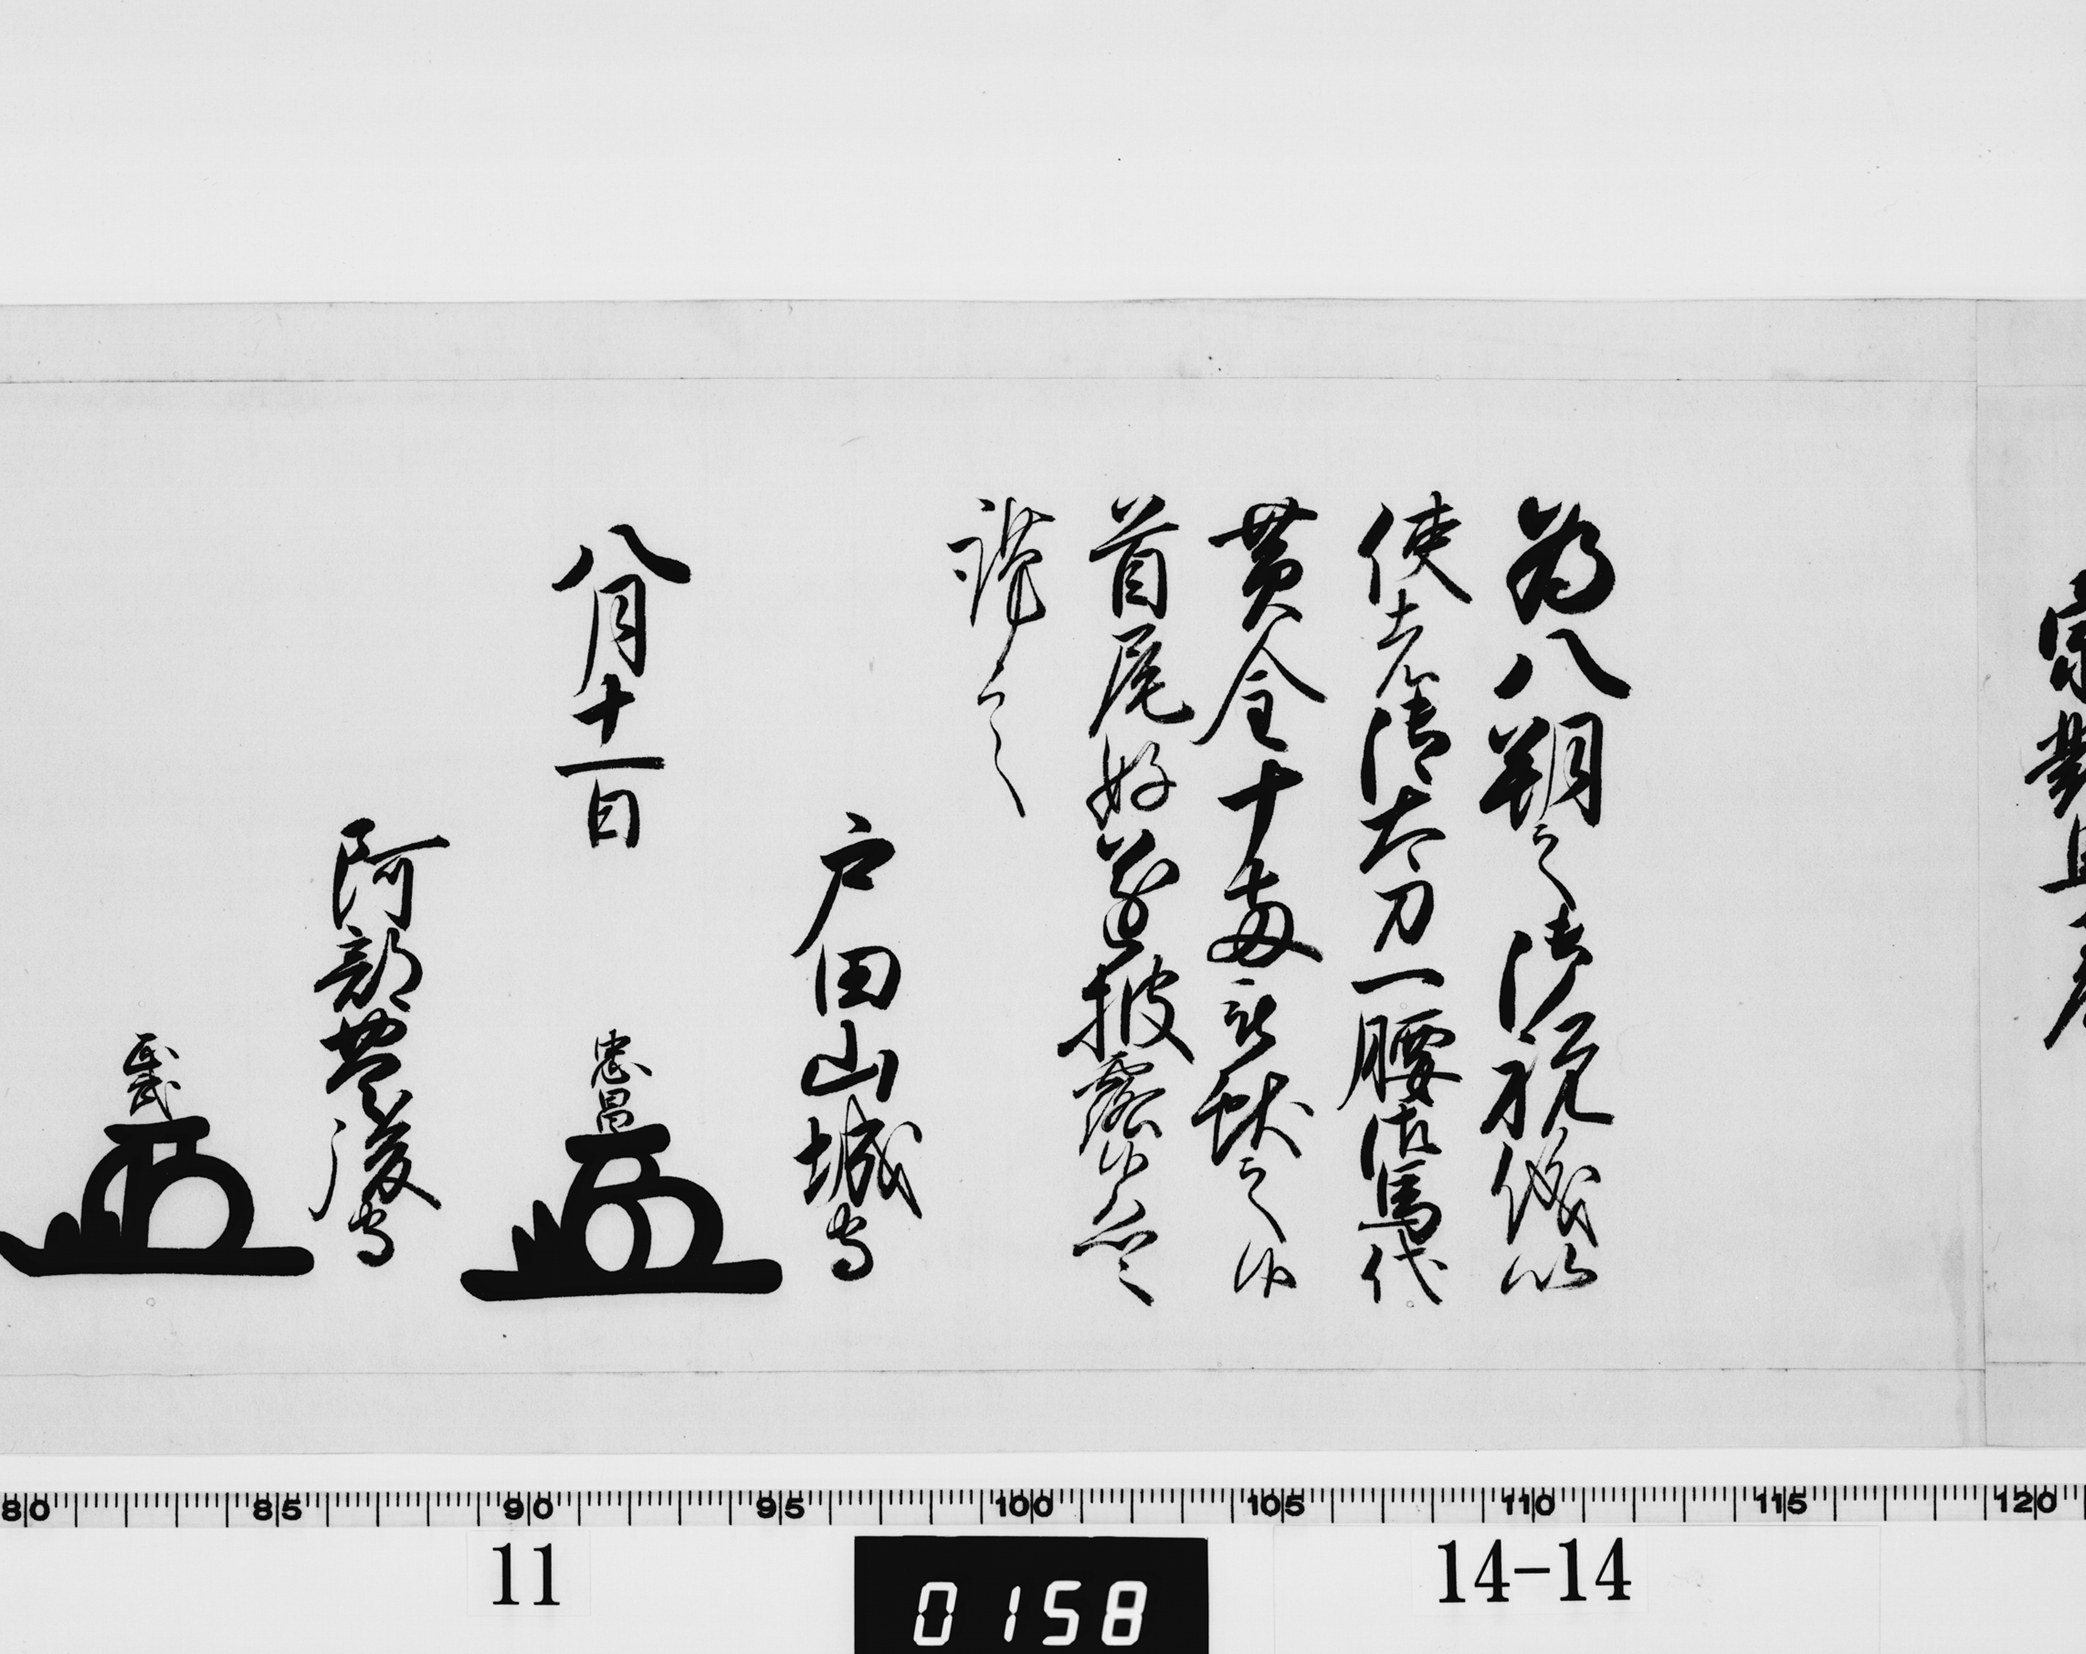 為八朔之御祝儀以
使者御太刀一腰御馬代
黄金十両被献之候
首尾好遂披露候恐々
謹言
戸田山城守
八月十一日
忠昌
阿部豊後守
正武
80 85 90 95 100 105 110 115 120
11
0158
14-14